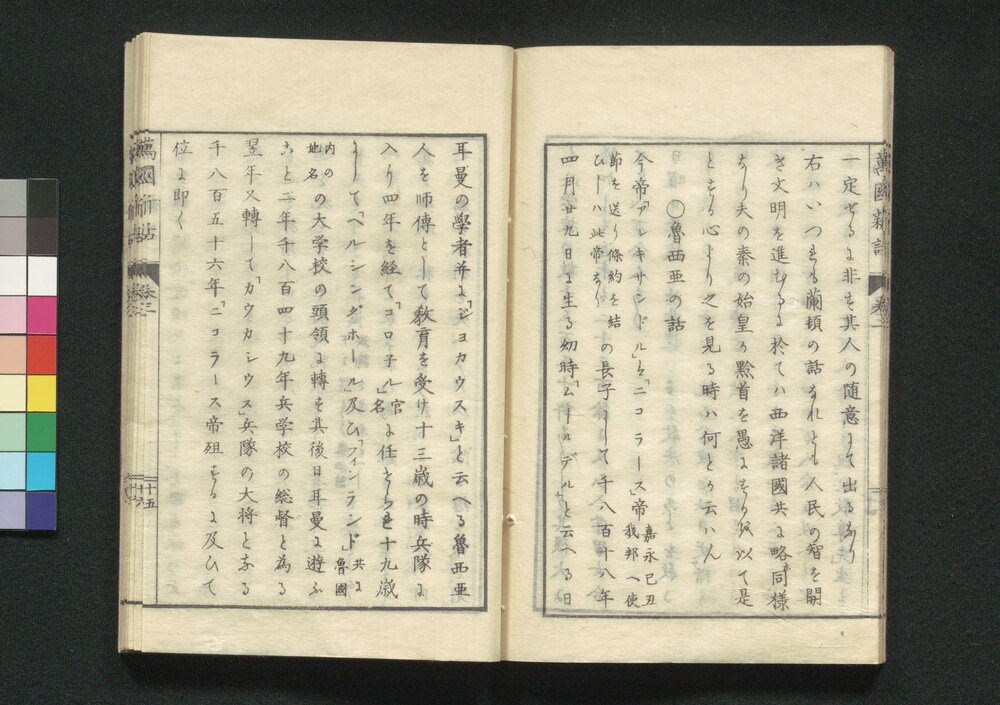 一定せるに非す其人の随意にて出るなり
右ハいつれも蘭頃の話なれとも人民の智を開
き文明を進むるに於てハ西洋諸國共に略同様
なり夫の秦の始皇か黔首を愚にせり以て是
とせる心より之を見る時ハ何とか云ハん
〇魯西亜の話
今帝「アレキサンドル」ハ「ニコラース」帝嘉永己丑我邦へ使
節を送り條約を結ひしハ此帝なりの長子にして千八百十八年
四月廿九日に生る幼時「ムールデル」と云へる日
耳曼の學者并に「ジョカウスキ」と云へる魯西亜
人を师傳として教育を受け十三歳の時兵隊に
入り四年を経て「コロ子ル」官名に任せられ十九歳
にして「ヘルシングホール」及ひ「フィンランド」共に魯國
内の地名の大学校の頭領に轉せ其後日耳曼に遊ふ
こと二年千八百四十九年兵学校の総督と為る
翌年又轉して「カウカシウス」兵隊の大将となる
千八百五十六年「ニコラース帝殂するに及ひて
位に即く
萬國新話
卷三
十五